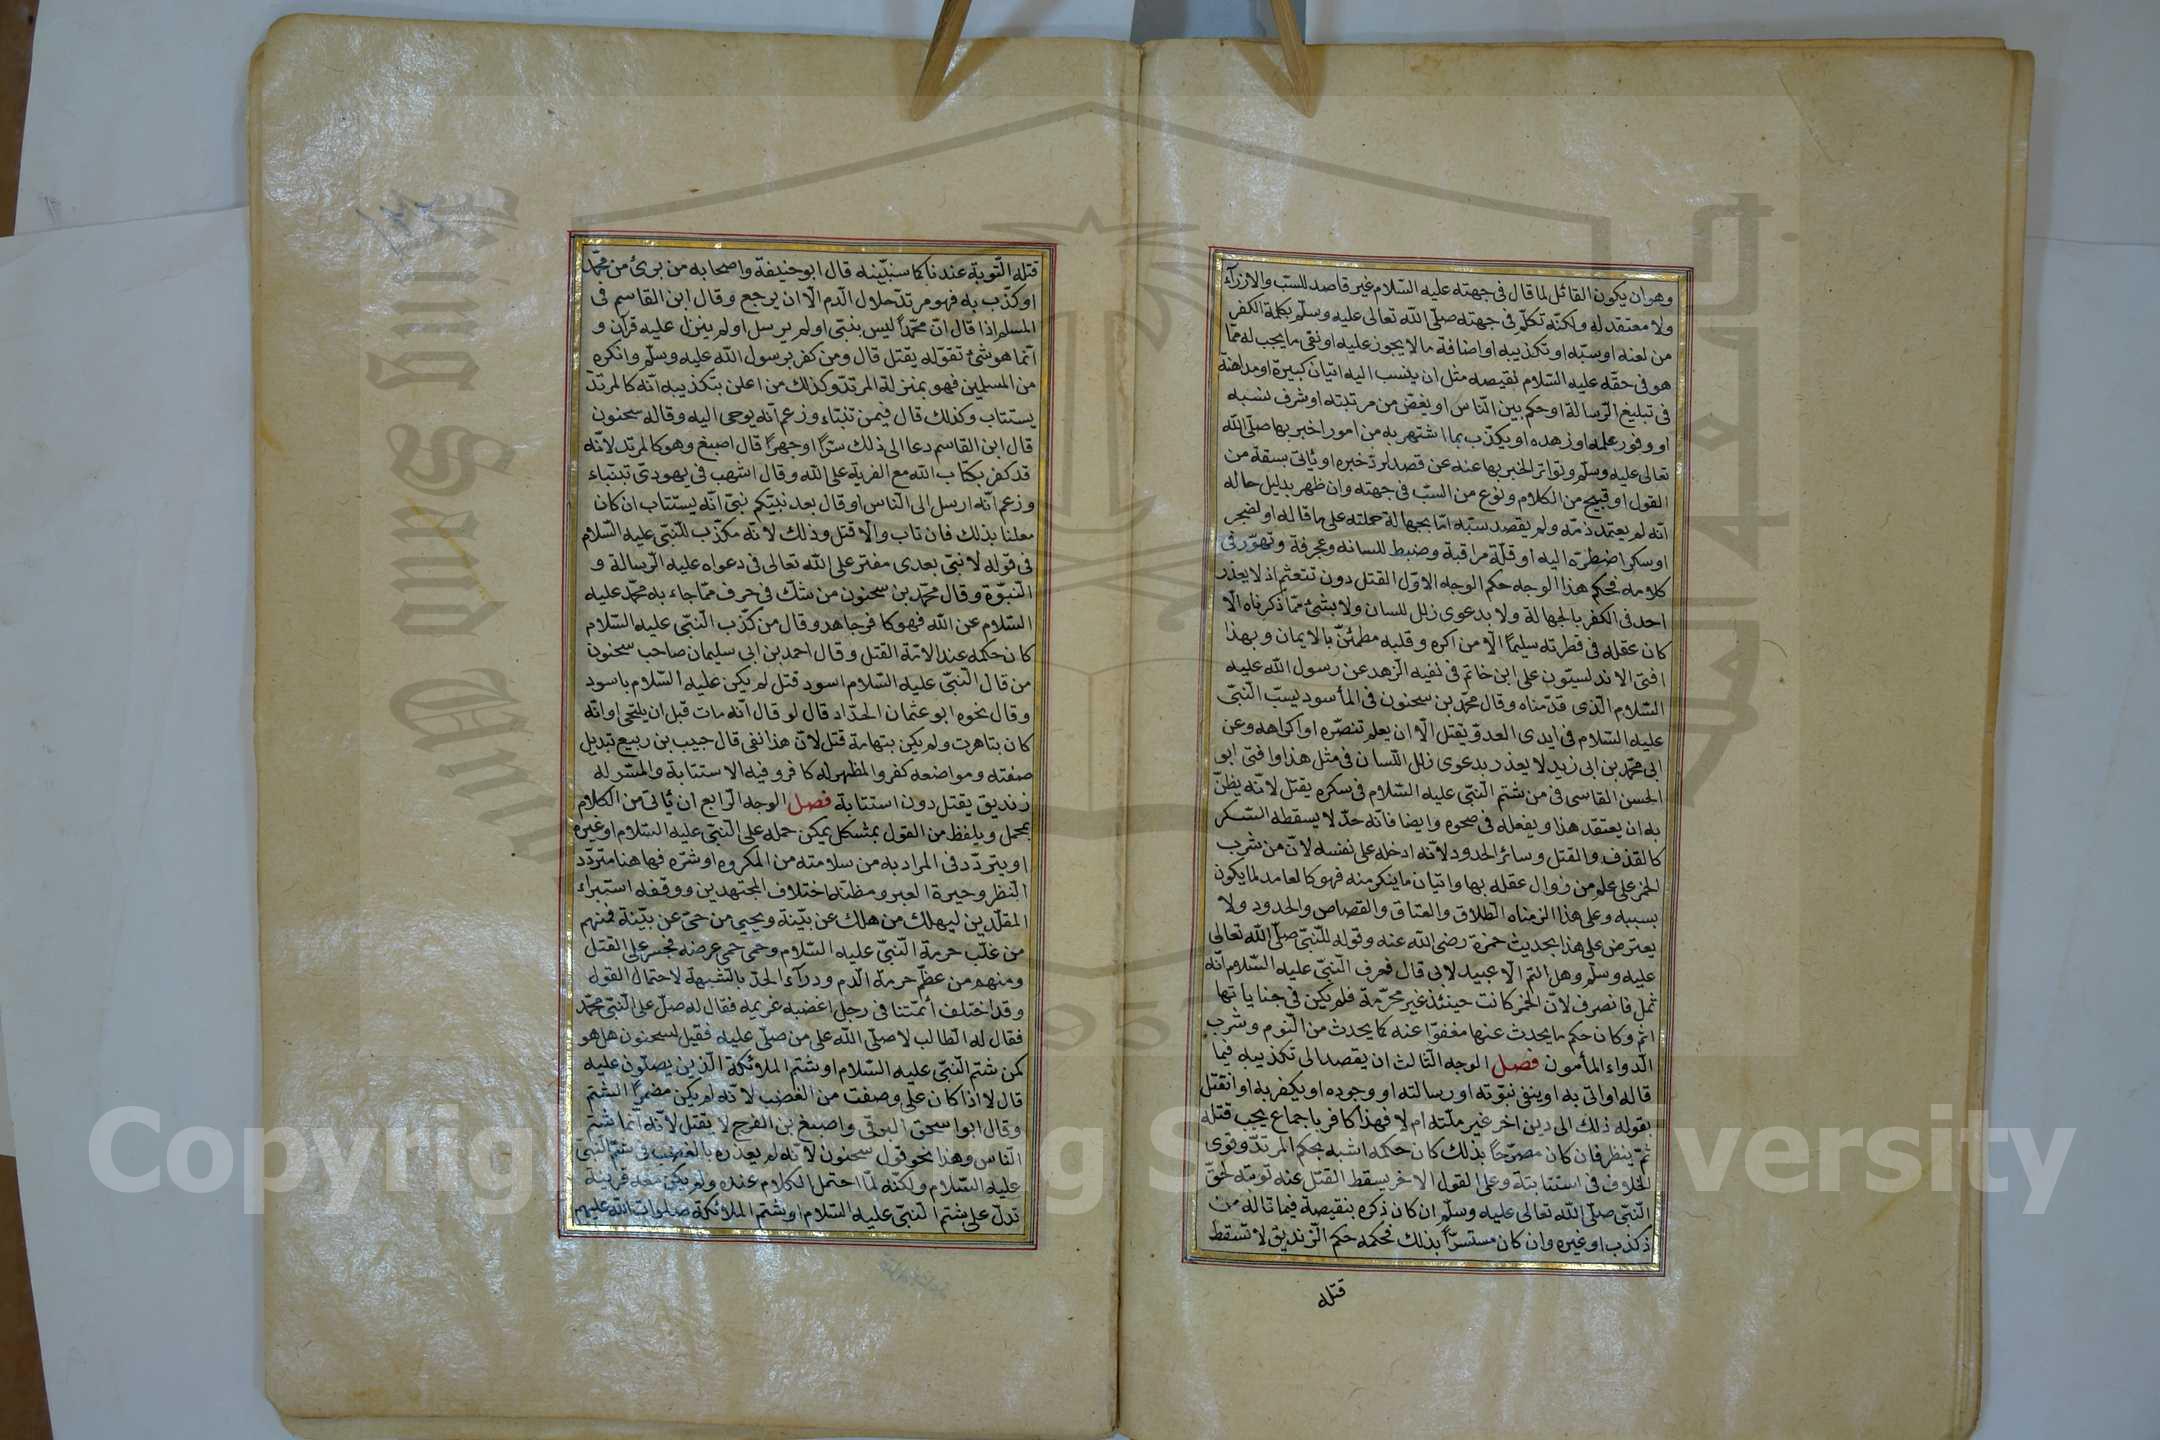 وهو ان يكون القائل لما قال فى جهته عليه السّلام غير قاصد للسّب والازرآء
ولا معتقد له ولكنّه تكلّم فى جهته صلّى الله تعالى عليه وسلّم بكلمة الكفر
من لعنه اوسبّه او تكذيبه او اضافة مالا يجوز عليه او نفى ما يجب له ممّا
هو فى حقّه عليه السّلام نقيصه مثل ان ينسب اليه اتيان كبيرة او مداهنة
فى تبليغ الرّسالة او حكم بين النّاس او يغضّ من مرتبته او شرف نسبه
او وفور علمه او زهده او يكذّب بما اشتهر به من امور اخبر بها صلّى الله
تعالى عليه وسلّم وتواتر الخبر بها عنه عن قصد لردّ خبره او يأتى بسفة من
القول او قبيح من الكلام ونوع من السبّ فى جهته وان ظهر بدليل حاله
انّه لم يعتمد ذمّه ولم يقصد سبّه امّا بجهالة حملته على ما قاله او لضجر
او سكر اضطرّه اليه او قلّة مراقبة وضبط للسانه وعجرفة وتهوّر فى
كلامه فحكم هذا الوجه حكم الوجه الاوّل القتل دون تتعثم اذ لا يعذر
احد فى الكفر بالجهالة ولا بدعوى زلل للسان ولا بشئ ممّا ذكرناه الّا
كان عقله فى فطرته سليمًا الّا من اكره وقلبه مطمئنّ بالايمان وبهذا
افتى الاندلسيّون على ابن خاتم فى نفيه الزهد عن رسول الله عليه
السّلام الّذى قدّمناه وقال محمّد بن سحنون فى المأسود يسبّ النّبىّ
عليه السّلام فى ايدى العدوّ يقتل الّا ان يعلم تنصّره او اكراهه وعن
ابى محمّد بن ابى زيد لا يعذر بدعوى زلل اللسان فى مثل هذا وافتى ابو
الحسن القاسى فى من شتم النّبىّ عليه السّلام فى سكره يقتل لانّه يظنّ
به ان يعتقد هذا ويفعله فى صحوه وايضا فانّه حدّ لا يسقطه السّكر
كالقذف والقتل وسائر الحدود لانّه ادخله على نفسه لانّ من شرب
الخمر على علم من زوال عقله بها واتيان ما ينكر منه فهو كالعامد لما يكون
بسببه وعلى هذا الزمناه الطلاق والعتاق والقصاص والحدود ولا
يعترض على هذا بحديث حمزة رضى الله عنه وقوله للنّبىّ صلّى الله تعالى
عليه وسلّم وهل انتم الّا عبيد لابى قال فعرف النّبىّ عليه السّلام انّه
ثمل فانصرف لانّ الخمر كانت حينئذ غير محرّمة فلم يكن فى جناياتها
اثم وكان حكم ما يحدث عنها معفوّا عنه كما يحدث من النّوم وشرب
الدّواء المأمون فصل الوجه الثّالث ان يقصد الى تكذيبه فيما
قاله او اتى به او ينفى نبوّته او رسالته او وجوده او يكفر به او انتقل
بقوله ذلك الى دين اخر غير ملّته ام لا فهذا كافر باجماع يجب قتله
ثمّ ينظر فان كان مصرّحًا بذلك كان حكمه اشبه بحكم المرتدّ وقوى
الخلاف فى استتابته وعلى القول الاخر يسقط القتل عنه توبته لحقّ
النّبىّ صلّى الله تعالى عليه وسلّم ان كان ذكره بنقيصة فيما قاله من
ذكذب او غيره وان كان مستسرّا بذلك فحكمه حكم الزنديق لا تسقط
قتله
قتله التّوبة عندنا كما سنبيّنه قال ابو حنيفة واصحابه من برئ من محمّد
او كذّب به فهو مرتدّ حلال الدّم الّا ان يرجع وقال ابن القاسم فى
المسلم اذا قال انّ محمّدًا ليس بنبىّ او لم يرسل او لم ينزل عليه قرآن و
انّما هو شئ تقوّله يقتل قال ومن كفر برسول الله عليه وسلّم وانكره
من المسلمين فهو بمنزلة المرتدّ وكذلك من اعلن بتكذيبه انّه كالمرتدّ
يستتاب وكذلك قال فيمن تنبّاء وزعم انّه يوحى اليه وقاله سحنون
قال ابن القاسم دعا الى ذلك سرًّا او جهرًا قال اصبغ وهو كالمرتد لانّه
قد كفر بكتاب الله مع الفرية على الله وقال اشهب فى يهودىّ تبنّباء
وزعم انّه ارسل الى النّاس او قال بعد نبيّكم نبىّ انّه يستتاب ان كان
معلنا بذلك فان تاب والّا قتل وذلك لانّه مكذّب للنّبىّ عليه السّلام
فى قوله لا نبىّ بعدى مفتر على الله تعالى فى دعواه عليه الرّسالة و
النّبوّة وقال محمّد بن سحنون من شكّ فى حرف ممّا جاء به محمّد عليه
السّلام عن الله فهو كافر جاهد وقال من كذّب النّبىّ عليه السّلام
كان حكمه عند الامّة القتل وقال احمد بن ابى سليمان صاحب سحنون
من قال النّبىّ عليه السّلام اسود قتل لم يكن عليه السّلام باسود
وقال نحوه ابو عثمان الحدّاد قال لو قال انّه مات قبل ان يلتحى او انّه
كان بتاهرت ولم يكن بتهامة قتل لانّ هذا نفى قال حبيب بن ربيع تبديل
صفته ومواضعه كفر والمظهر له كافر وفيه الاستتابة والمسّر له
زنديق يقتل دون استتابة فصل الوجه الرّابع ان يأتى من الكلام
بمجمل ويلفظ من القول بمشكل يمكن حمله على النّبىّ عليه السّلام او غيره
او يتردّد فى المراد به من سلامته من المكروه او شرّه فهاهنا متردّد
النّظر وحيرة العبر ومظنّة اختلاف المجتهدين ووقفه استبراء
المقلّدين ليهلك من هلك عن بيّنة ويحيى من حىّ عن بيّنة فمنهم
من غلّب حرمة النّبىّ عليه السّلام وحمى حمى عرضه فجسر على القتل
ومنهم من عظّم حرمة الدّم ودرآء الحدّ بالشّبهة لاحتمال القول
وقد اختلف أئمّتنا فى رجل اغضبه غريمه فقال له صلّ على النّبىّ محمّد
فقال له الطّالب لا صلّى الله على من صلّى عليه فقيل لسحنون هل هو
كمن شتم النّبىّ عليه السّلام او شتم الملائكة الّذين يصلّون عليه
قال لا اذا كان على وصفت من الغضب لانّه لم يكن مضمرًا الشتم
وقال ابو اسحق البرقى واصبغ بن الفرج لا يقتل لانّه انّما شتم
النّاس وهذا نحو قول سحنون لانّه لم يعذره بالغضب فى شتم النّبىّ
عليه السّلام ولكنّه لمّا احتمل الكلام عنده ولم يكن معه قرينة
تدلّ على شتم النّبىّ عليه السّلام او شتم الملائكة صلوات الله عليهم
Copyright © King Saud University